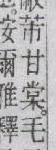 芾甘棠毛
安爾雅釋